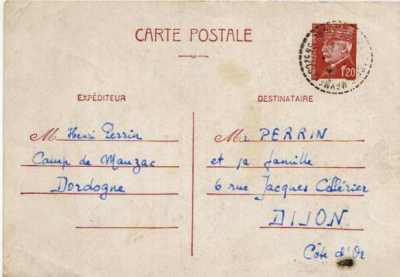 CARTE POSTALE
1f20
EXPÉDITEUR
M. Henri Perrin
Camp de Mauzac
Dordogne
DESTINATAIRE
Mr PERRIN
et sa famille
6 rue Jacques Cellérier
DIJON
Côte d'Or